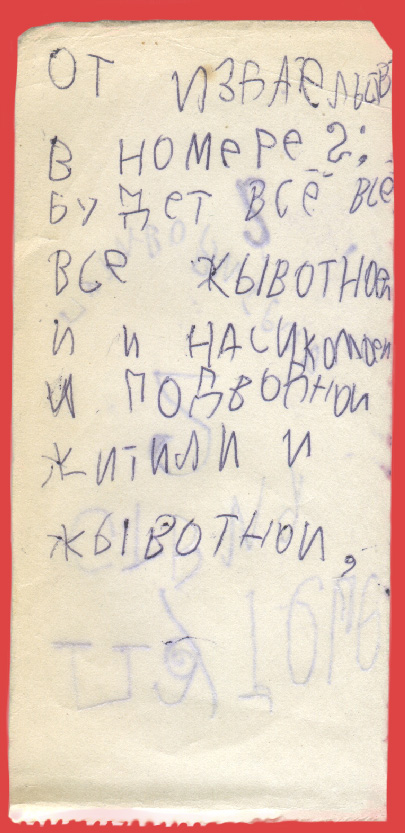 ОТ ИЗДАТЕЛЬСТВ
В НОМЕРЕ 2:
БУДЕТ ВСЁ ВСЁ
ВСЕ ЖЫВОТНОЕИ
И И НАСИКОМОЕИ
И ПОДВОДНОИ
ЖИТИЛИ И
ЖЫВОТНОИ,